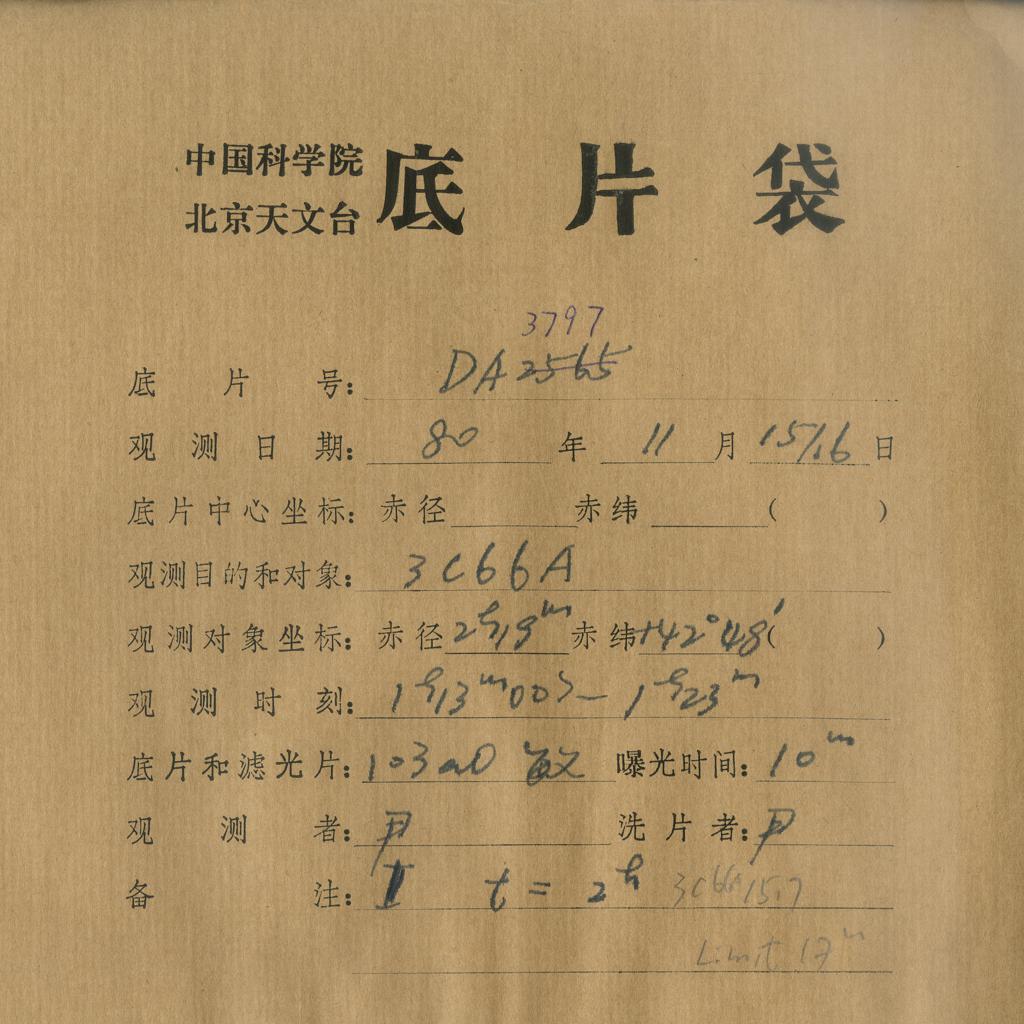 中国科学院
北京天文台
底片袋
3797
底片号: DA 2565
观测日期: 80 年 11 月 15/16 日
底片中心坐标: 赤径 赤纬 ( )
观测目的和对象: 3C66A
观测对象坐标: 赤径 2h19m 赤纬 +42°48′ ( )
观测时刻: 1h13m00s — 1h23m
底片和滤光片: 103aO 敏 曝光时间: 10m
观测者: 尹 洗片者: 尹
备注: I t = 2h 3C66A 15.7
Limit 17m